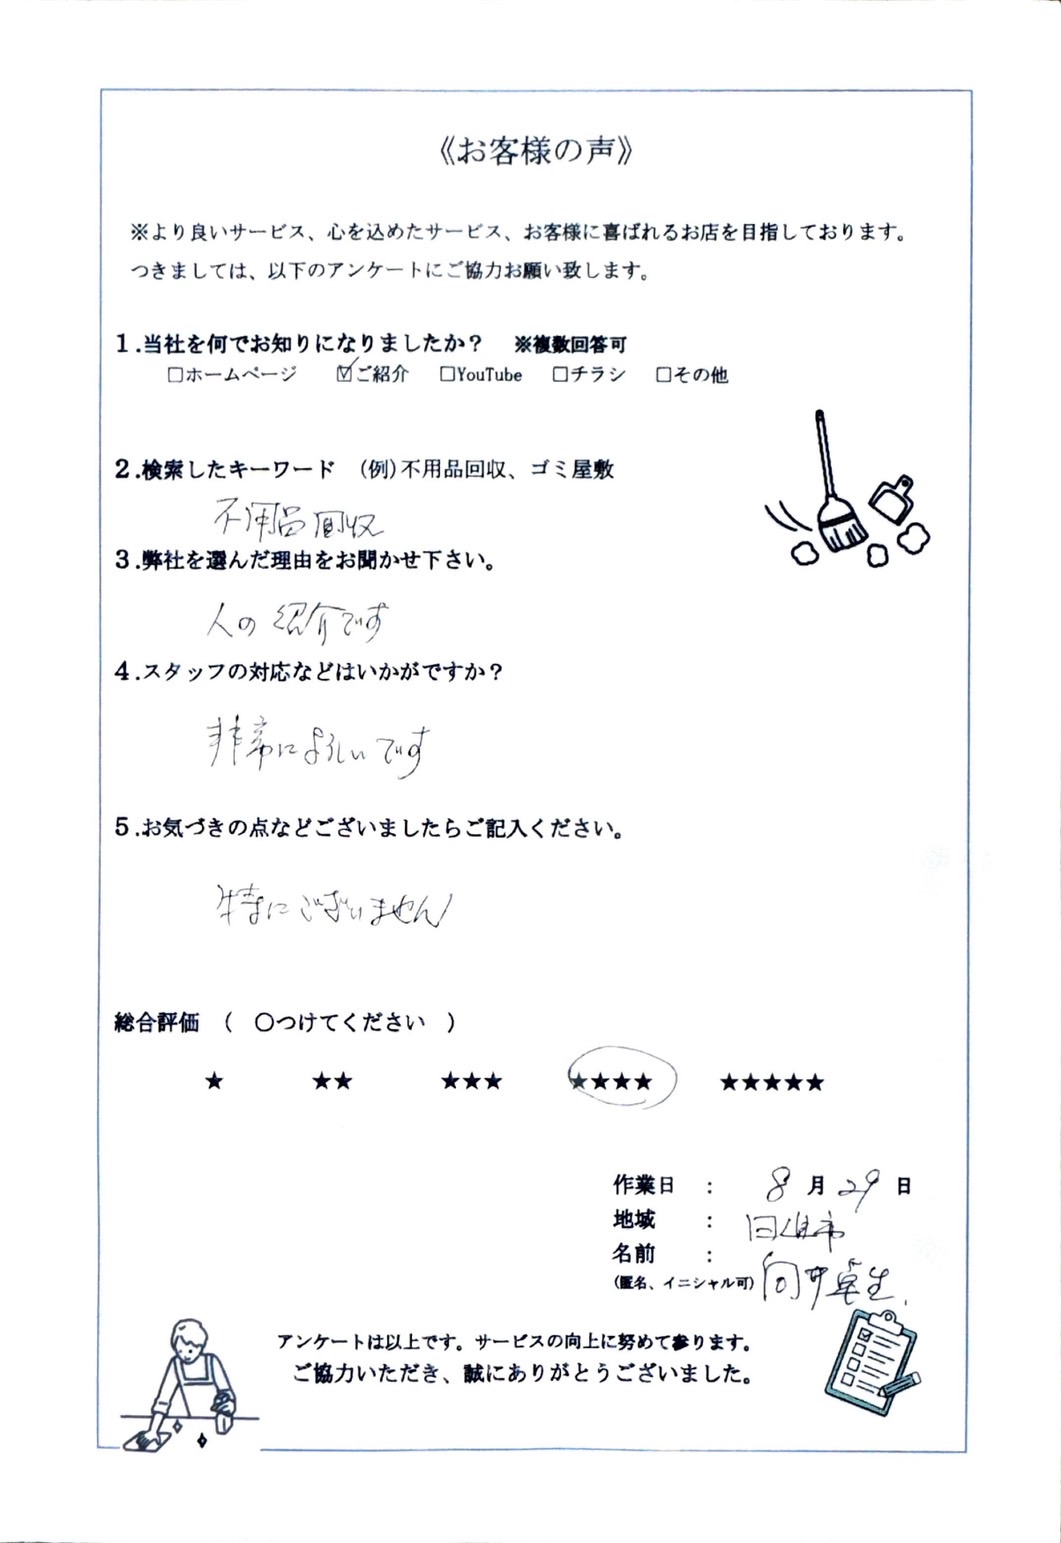 《お客様の声》
※より良いサービス、心を込めたサービス、お客様に喜ばれるお店を目指しております。
つきましては、以下のアンケートにご協力お願い致します。
1.当社を何でお知りになりましたか？ ※複数回答可
□ホームページ ☑ご紹介 □YouTube □チラシ □その他
2.検索したキーワード (例)不用品回収、ゴミ屋敷
不用品回収
3.弊社を選んだ理由をお聞かせ下さい。
人の紹介です
4.スタッフの対応などはいかがですか？
非常によろしいです
5.お気づきの点などございましたらご記入ください。
特にございません
総合評価 ( 〇つけてください )
★ ★★ ★★★ ★★★★ ★★★★★
作業日 : 8月29日
地域 : 日進市
名前 : 向井
(匿名、イニシャル可)
アンケートは以上です。サービスの向上に努めて参ります。
ご協力いただき、誠にありがとうございました。